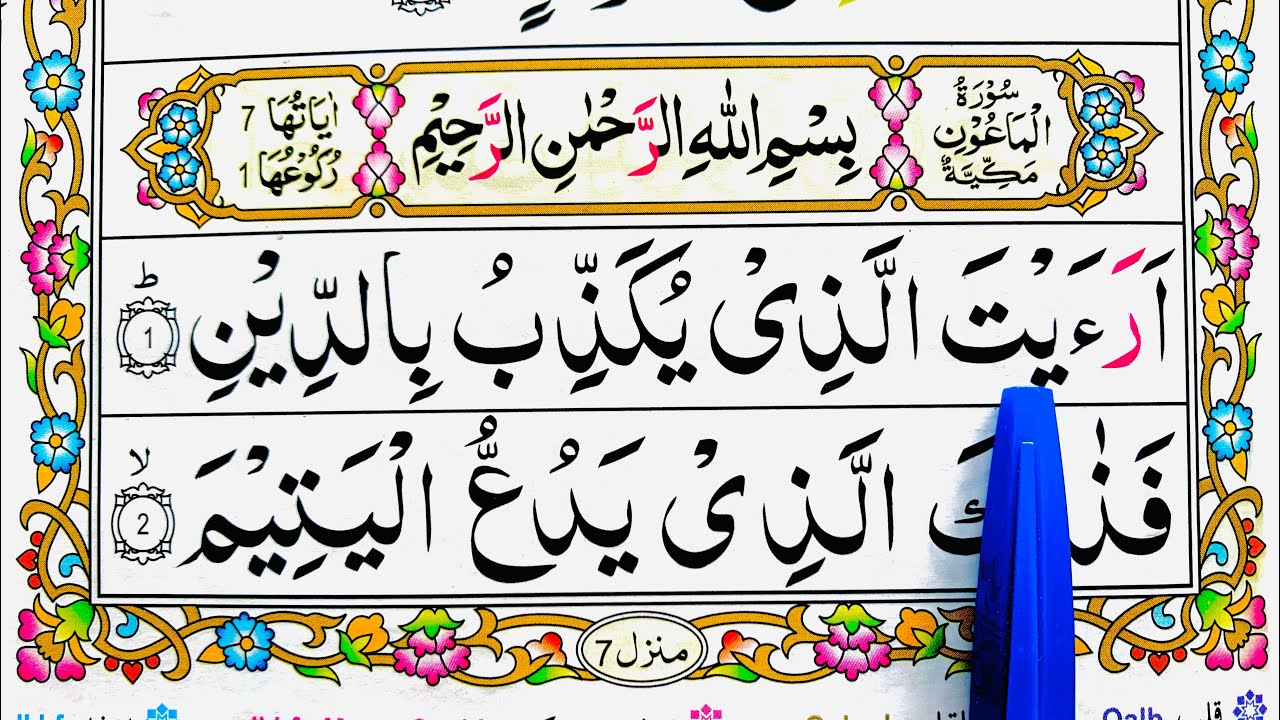 سُوْرَةُ
الْمَاعُوْنِ
مَكِّيَّةٌ
بِسْمِ اللّٰهِ الرَّحْمٰنِ الرَّحِيْمِ
اٰيَاتُهَا 7
رُكُوْعُهَا 1
اَرَءَيْتَ الَّذِيْ يُكَذِّبُ بِالدِّيْنِ ؕ 1
الَّذِيْ يَدُعُّ الْيَتِيْمَ ۙ 2
منزل 7